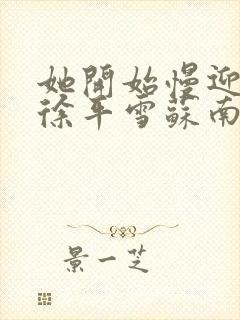 她開始慢迎
徐平雪蘇南
景一芝